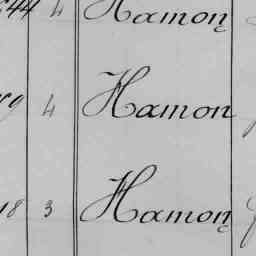 644 4 Hamon
9 4 Hamon
18 3 Hamon